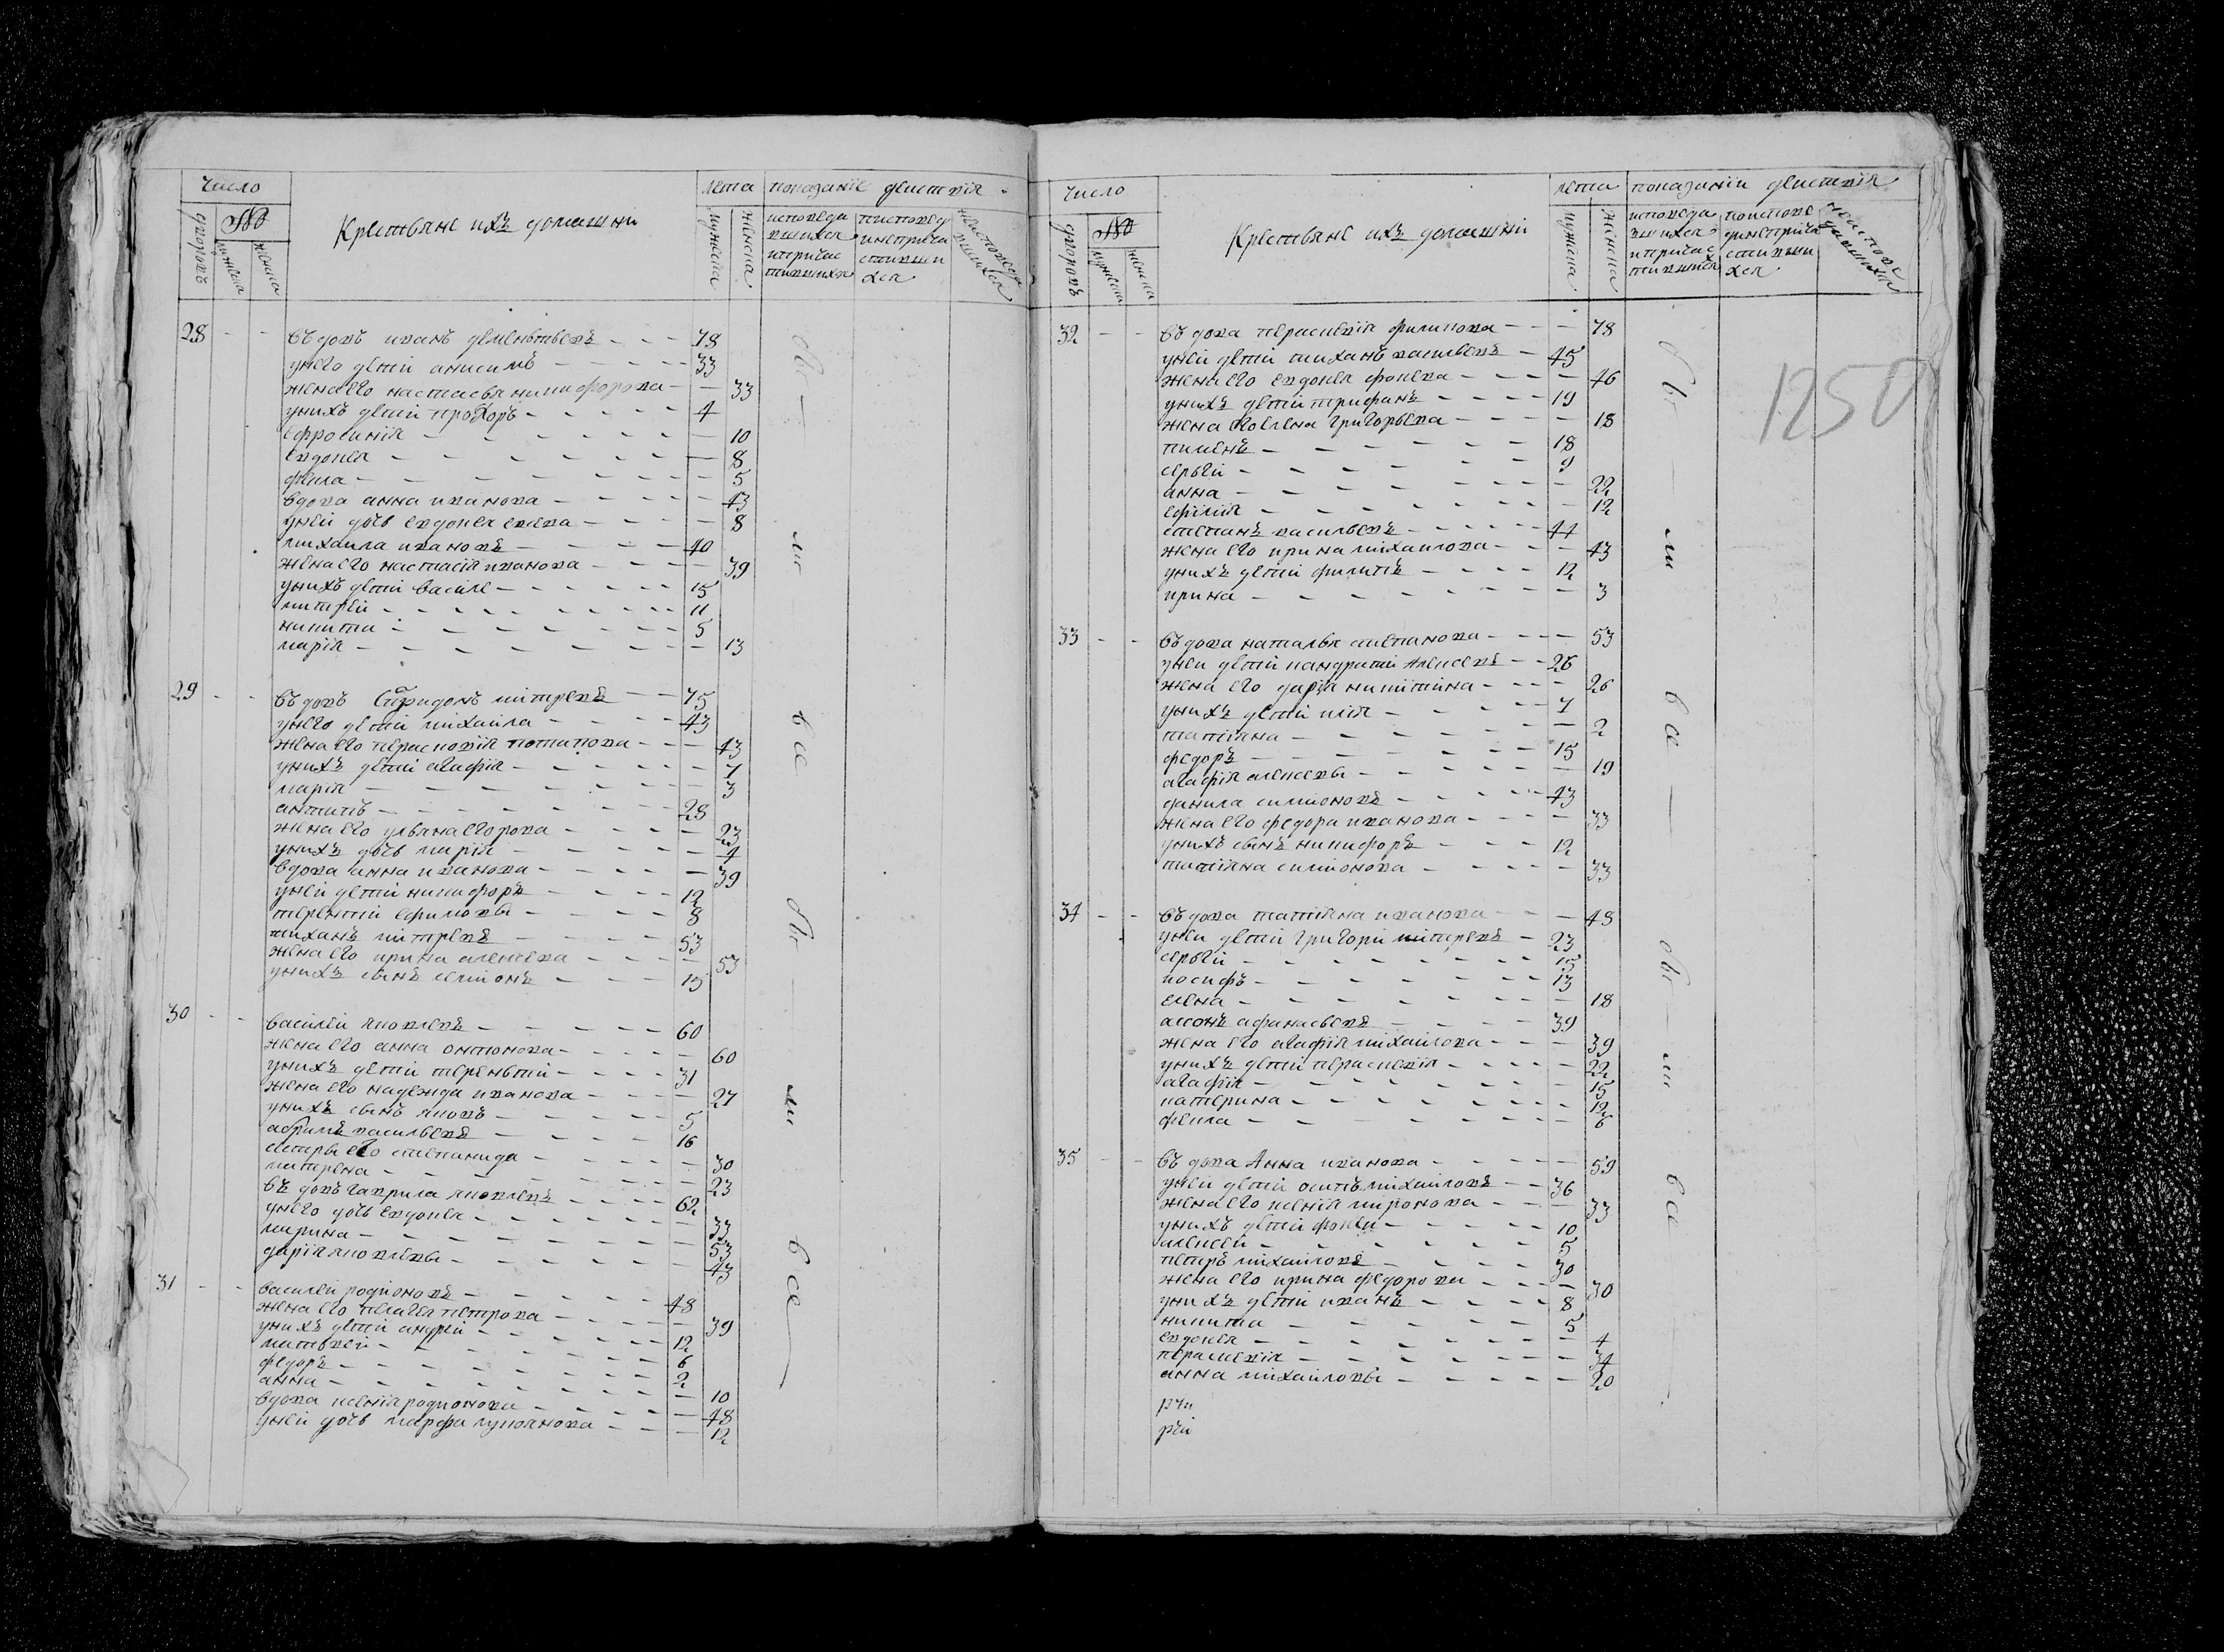 Число
лета показаніе действія
дворовъ
мужеска
женска
Крестьяне ихъ домашни
мужеска
женска
исповеда
вшихся
и причас
тившихся
28 - - въдовъ иванъ дементьевъ - - - 78
унего дети анисимъ - - - - 33
жена его настасья никифорова - - 33
унихъ дети прохоръ - - - - - 4
ефросинія - - - - - - 10
евдокея - - - - - - 8
фекла - - - - - - 5
вдова анна иванова - - - - 43
уней дочь евдокея - - - - 8
михаила ивановъ - - - - 40
жена его настасія иванова - - - - 39
унихъ дети василе - - - - - 15
митрей - - - - - - - 11
никита - - - - - - 5
марія - - - - - - - 13
29 - - въдовъ Спиридонъ митревъ - - 75
унего дети михаила - - - - 43
жена его парасковія потапова - - - 43
унихъ дети агафія - - - - - 7
марія - - - - - - 3
антипъ - - - - - - 28
жена его ульяна егорова - - - - 23
унихъ дочь марія - - - - - 4
вдова анна иванова - - - - - 39
уней дети никифоръ - - - - 12
терентий ефимовы - - - - 8
тиханъ митревъ - - - - 53
жена его ирина алексева - - - - 53
унихъ сынъ семионъ - - - - 15
30 - - василеи яковлевъ - - - - - 60
жена его анна онтонова - - - - 60
унихъ дети терентий - - - - 31
жена его надежда иванова - - - - 27
унихъ сынъ яковъ - - - - - 5
абрамъ васильевъ - - - - 16
сестры его степанида - - - - 30
матрена - - - - - - 23
въдовъ гаврила яковлевъ - - - - 62
унего дочь евдокея - - - - - 33
марина - - - - - - 53
дарія яковлевы - - - - - 43
31 - - василеи родионовъ - - - - - 48
жена его пелагея петрова - - - - 39
унихъ дети андрей - - - - - 12
матвей - - - - - - 6
федоръ - - - - - - 2
анна - - - - - - - 10
вдова ксения родионова - - - - 48
уней дочь марфа лукоянова - - - 12
Число
лета показании действія
дворовъ
мужеска
женска
Крестьяне ихъ домашни
мужеска
женска
исповеда
вшихся
и причас
тившихся
1250
32 - - въдова парасковия филипова - - - 78
уней дети тиханъ васильевъ - 45
жена его евдокея фокеева - - - - 46
унихъ дети трифанъ - - - - 19
жена его елена григорьева - - - - 18
пименъ - - - - - - 18
сергей - - - - - - 9
анна - - - - - - - 22
ефимія - - - - - - 12
степанъ васильевъ - - - - - 44
жена его ирина михаилова - - - 43
унихъ дети филипъ - - - - 12
ирина - - - - - - - 3
33 - - въдова наталья степанова - - - - 53
уней дети кандратий Алексевъ - - 26
жена его дарья никитина - - - - 26
унихъ дети илія - - - - 7
татіяна - - - - - - 2
федоръ - - - - - - 15
агафія алексевы - - - - - 19
данила симионовъ - - - - 43
жена его федора иванова - - - - 33
унихъ сынъ никифоръ - - - 12
татіяна симионова - - - - 33
34 - - въдова татіяна иванова - - - 48
уней дети григори митревъ - 23
сергей - - - - - - - 15
иосифъ - - - - - - 13
елена - - - - - - - 18
афанасьевъ - - - - 39
жена его агафія михаилова - - - 39
унихъ дети парасковія - - - - 22
агафія - - - - - - - 15
катерина - - - - - - 12
фекла - - - - - - 6
35 - - въдова Анна иванова - - - - 59
уней дети осипъ михаиловъ - - 36
жена его ксенія миронова - - - 33
унихъ дети фокеи - - - - - 10
алексеи - - - - - - 5
петръ михаиловъ - - - - 30
жена его ирина федорова - - - - 30
унихъ дети иванъ - - - - 8
никита - - - - - 5
евдокея - - - - - - 4
парасковія - - - - - - 34
анна михаиловы - - - - - 20